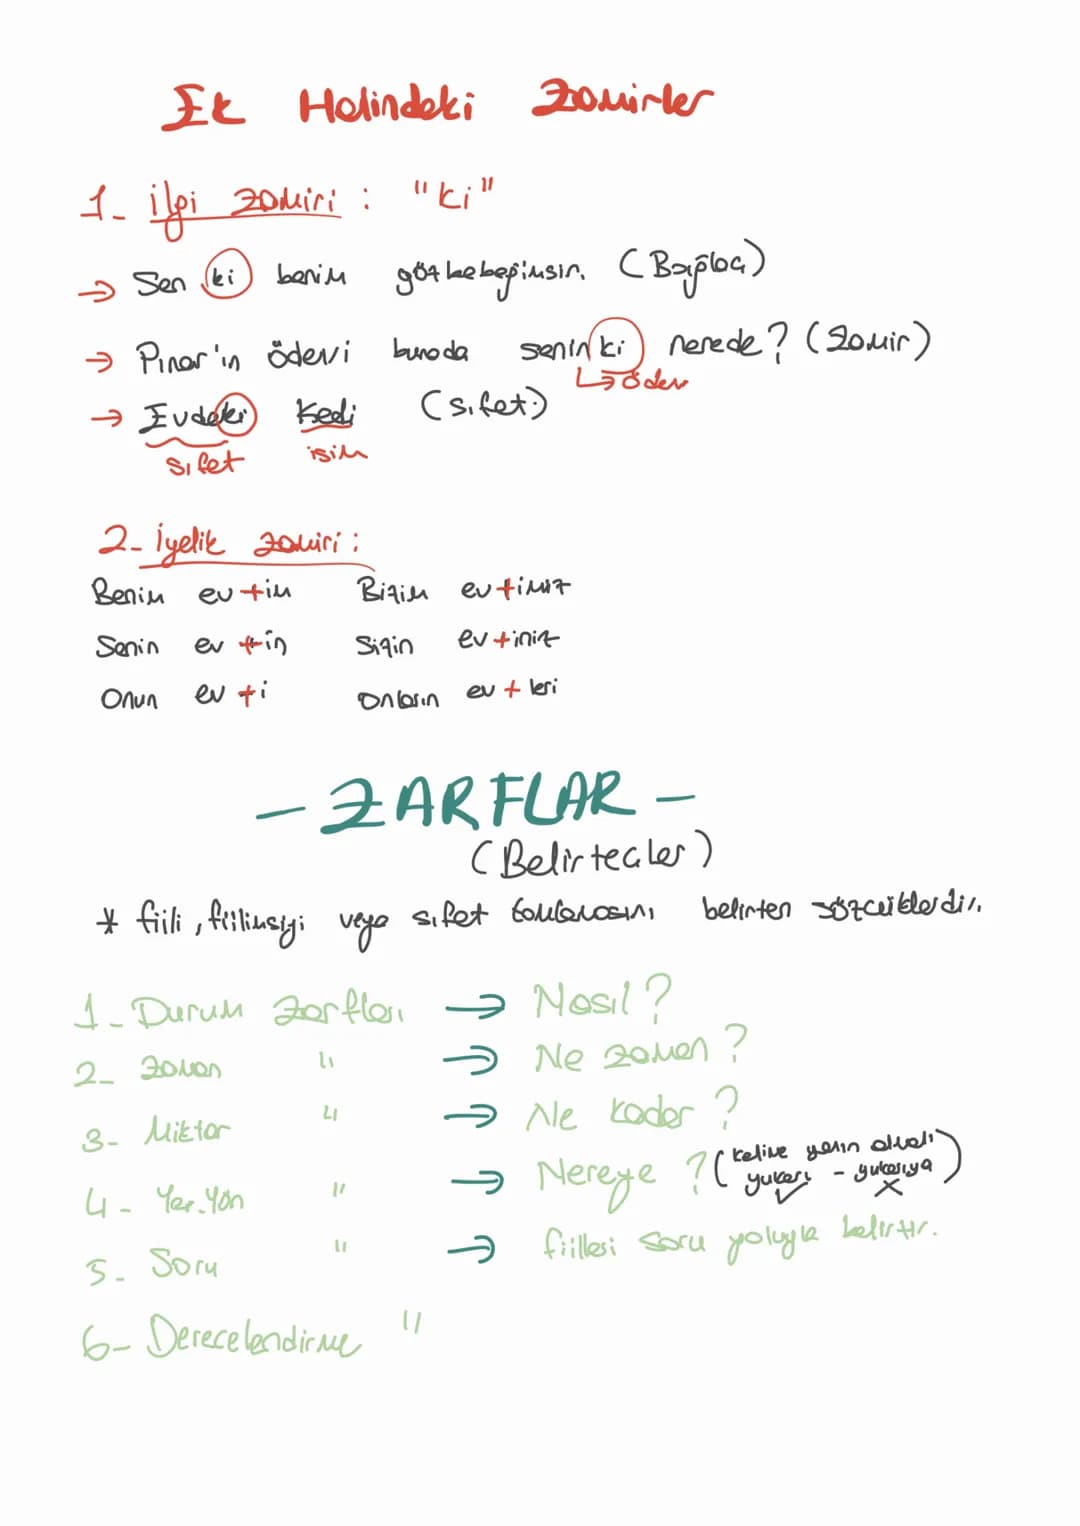 Ek Halindeki Zamirler
1- İlgi zamiri : "ki"
→ Sen ki benim gözbebeğimsin. (Bağlaç)
→ Pınar'ın ödevi burada seninki nerede? (Zamir)
↳ ödev
→ Evdeki Kedi (sıfat)
sıfat isim
2- İyelik zamiri :
Benim ev +im Bizim ev +imiz
Senin ev +in Sizin ev +iniz
Onun ev +i Onların ev + leri
- ZARFLAR -
(Belirteçler)
* fiili, fiilimsiyi veya sıfat tamlamasını belirten sözcüklerdir.
1- Durum Zarfları → Nasıl?
2- Zaman " → Ne zaman?
3- Miktar " → Ne kadar?
4- Yer-Yön " → Nereye? (kelime yalın olmalı
yukarı - yukarıya)
5- Soru " → fiilleri soru yoluyla belirtir.
6- Derecelendirme "